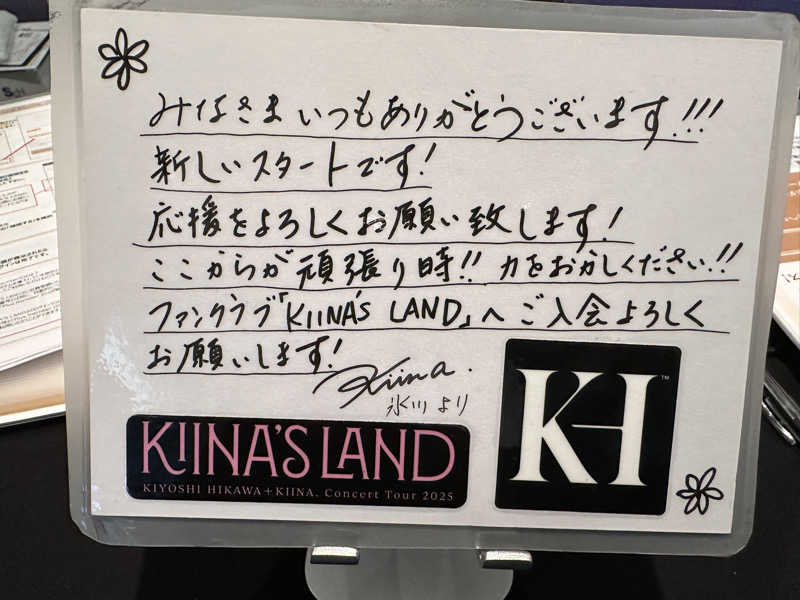 みなさまいつもありがとうございます!!!
新しいスタートです!
応援をよろしくお願い致します!
ここからが頑張り時!! 力をおかしください!!
ファンクラブ「KIINA'S LAND」へご入会よろしく
お願いします!
Kiina.
氷川より
KIINA'S LAND
KIYOSHI HIKAWA+KIINA. Concert Tour 2025
KH
TM